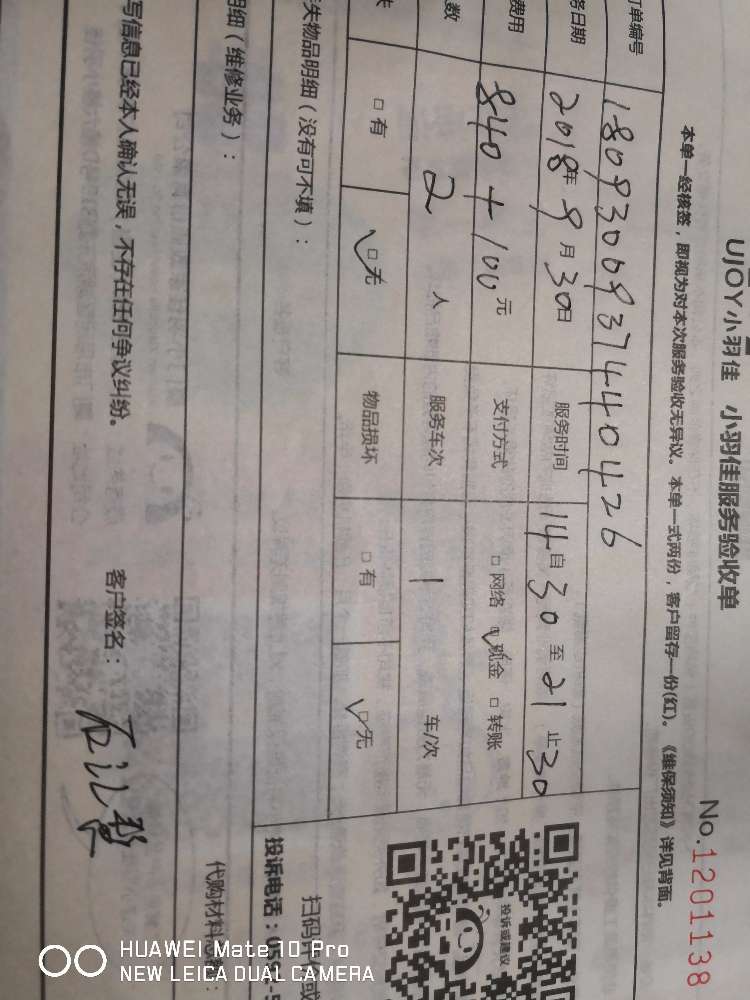 UJOY小羽佳 小羽佳服务验收单
No.1201138
本单一经核签，即视为对本次服务验收无异议。本单一式两份，客户留存一份(红)。《维保须知》详见背面。
订单编号 1809300937440426
务日期 2018年9月30日 服务时间 14自30至21止30
费用 840+100元 支付方式 □网络 ☑现金 □转账
数 2人 服务车次 1 车/次
失 □有 ☑无 物品损坏 □有 ☑无
失物品明细（没有可不填）：
明细（维修业务）：
代购材料总额：
写信息已经本人确认无误，不存在任何争议纠纷。 客户签名：
投诉或建议
扫码评价或
投诉电话：05
HUAWEI Mate 10 Pro
NEW LEICA DUAL CAMERA